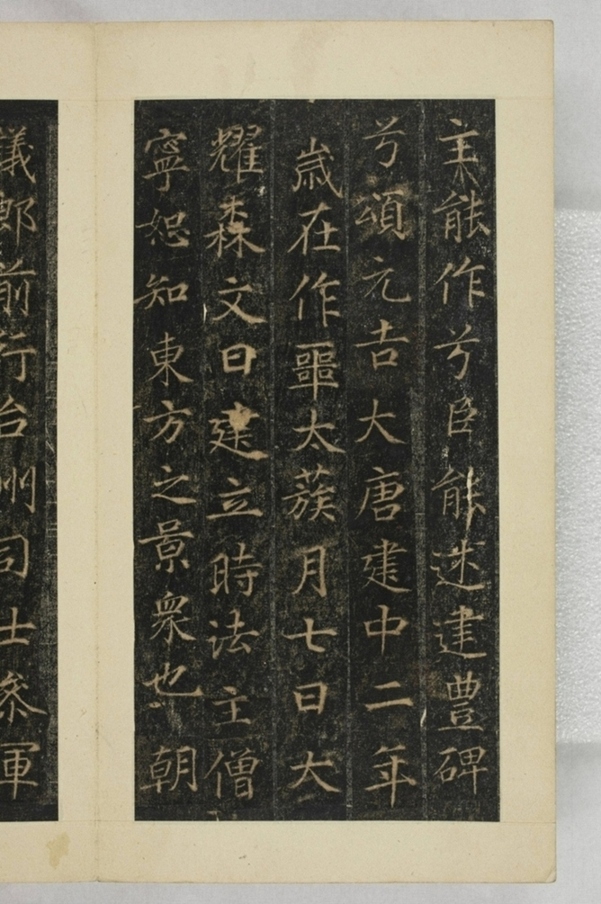 主能作兮臣能述建豊碑
兮頌元吉大唐建中二年
歳在作噩太蔟月七日大
耀森文日建立時法主僧
寧恕知東方之景衆也朝
議郎前行台州司士參軍